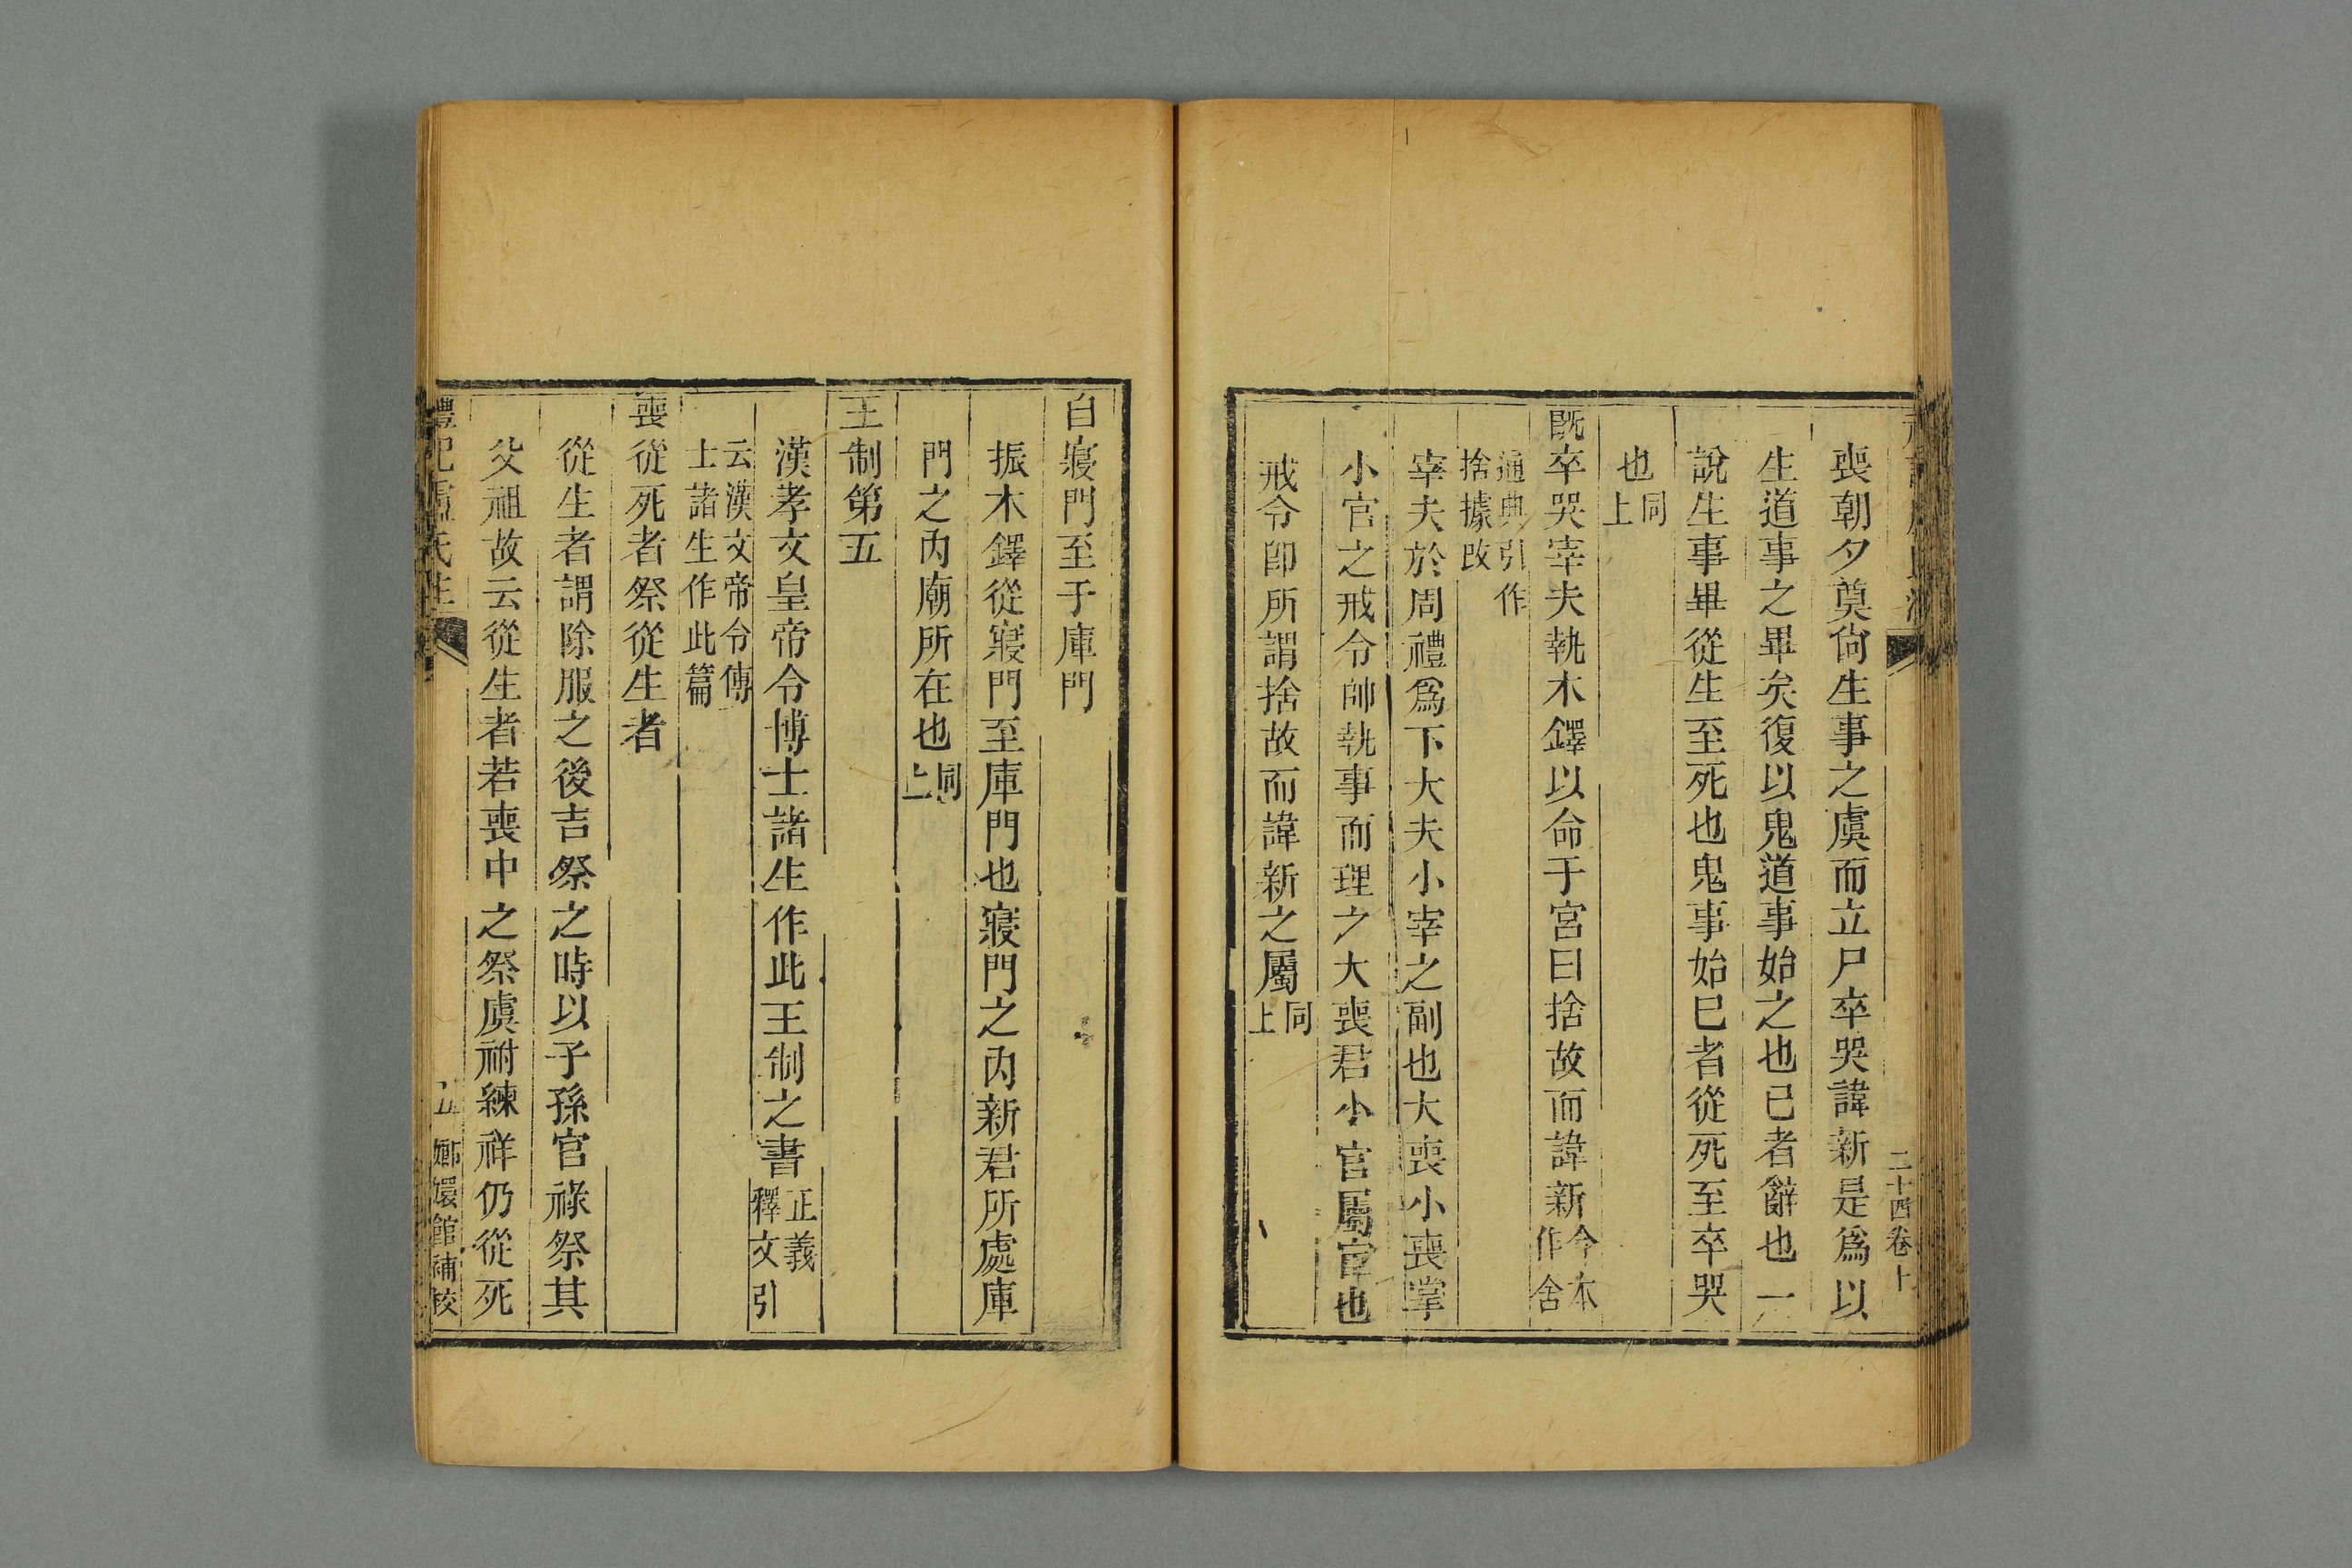 喪朝夕奠尙生事之虞而立尸卒哭諱新是爲以
生道事之畢矣復以鬼道事始之也已者辭也一
說生事畢從生至死也鬼事始巳者從死至卒哭
也同上
既卒哭宰夫執木鐸以命于宮曰捨故而諱新今本作舍
通典引作捨據改
宰夫於周禮爲下大夫小宰之副也大喪小喪掌
小官之戒令帥執事而理之大喪君小官屬官也
戒令卽所謂捨故而諱新之屬同上
二十四卷上
自寢門至于庫門
振木鐸從寢門至庫門也寢門之內新君所處庫
門之內廟所在也同上
王制第五
漢孝文皇帝令博士諸生作此王制之書正義釋文引
云漢文帝令傅士諸生作此篇
喪從死者祭從生者
從生者謂除服之後吉祭之時以子孫官祿祭其
父祖故云從生者若喪中之祭虞祔練祥仍從死
禮記盧氏注 五 嫏嬛館補校